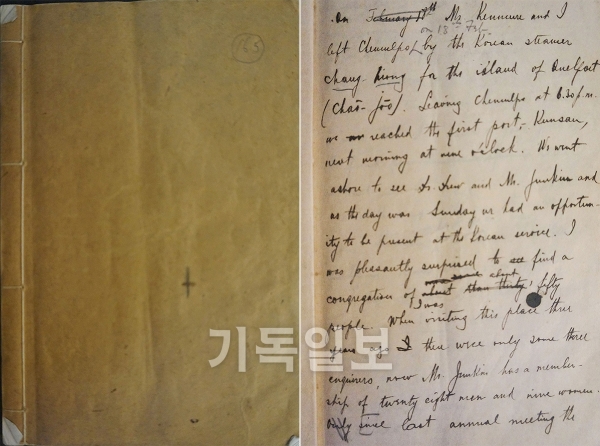 165
On February 17th Mr. Kenmure and I
on 18th Feb.
left Chemulpo, by the Korean steamer
Chang Riong for the island of Quelpart
(Chai-joo). Leaving Chemulpo at 6.30 p.m.
we reached the first port, Kunsan,
next morning at nine o'clock. We went
ashore to see Dr Drew and Mr. Junkin and
as the day was Sunday we had an opportun-
ity to be present at the Korean service. I
was pleasantly surprised to see find a
about
congregation of than thirty fifty
I was
people. When visiting this place three
years ago I there were only some three
enquirers, now Mr. Junkin has a member-
ship of twenty eight men and nine women.
Only since last annual meeting the
기독일보